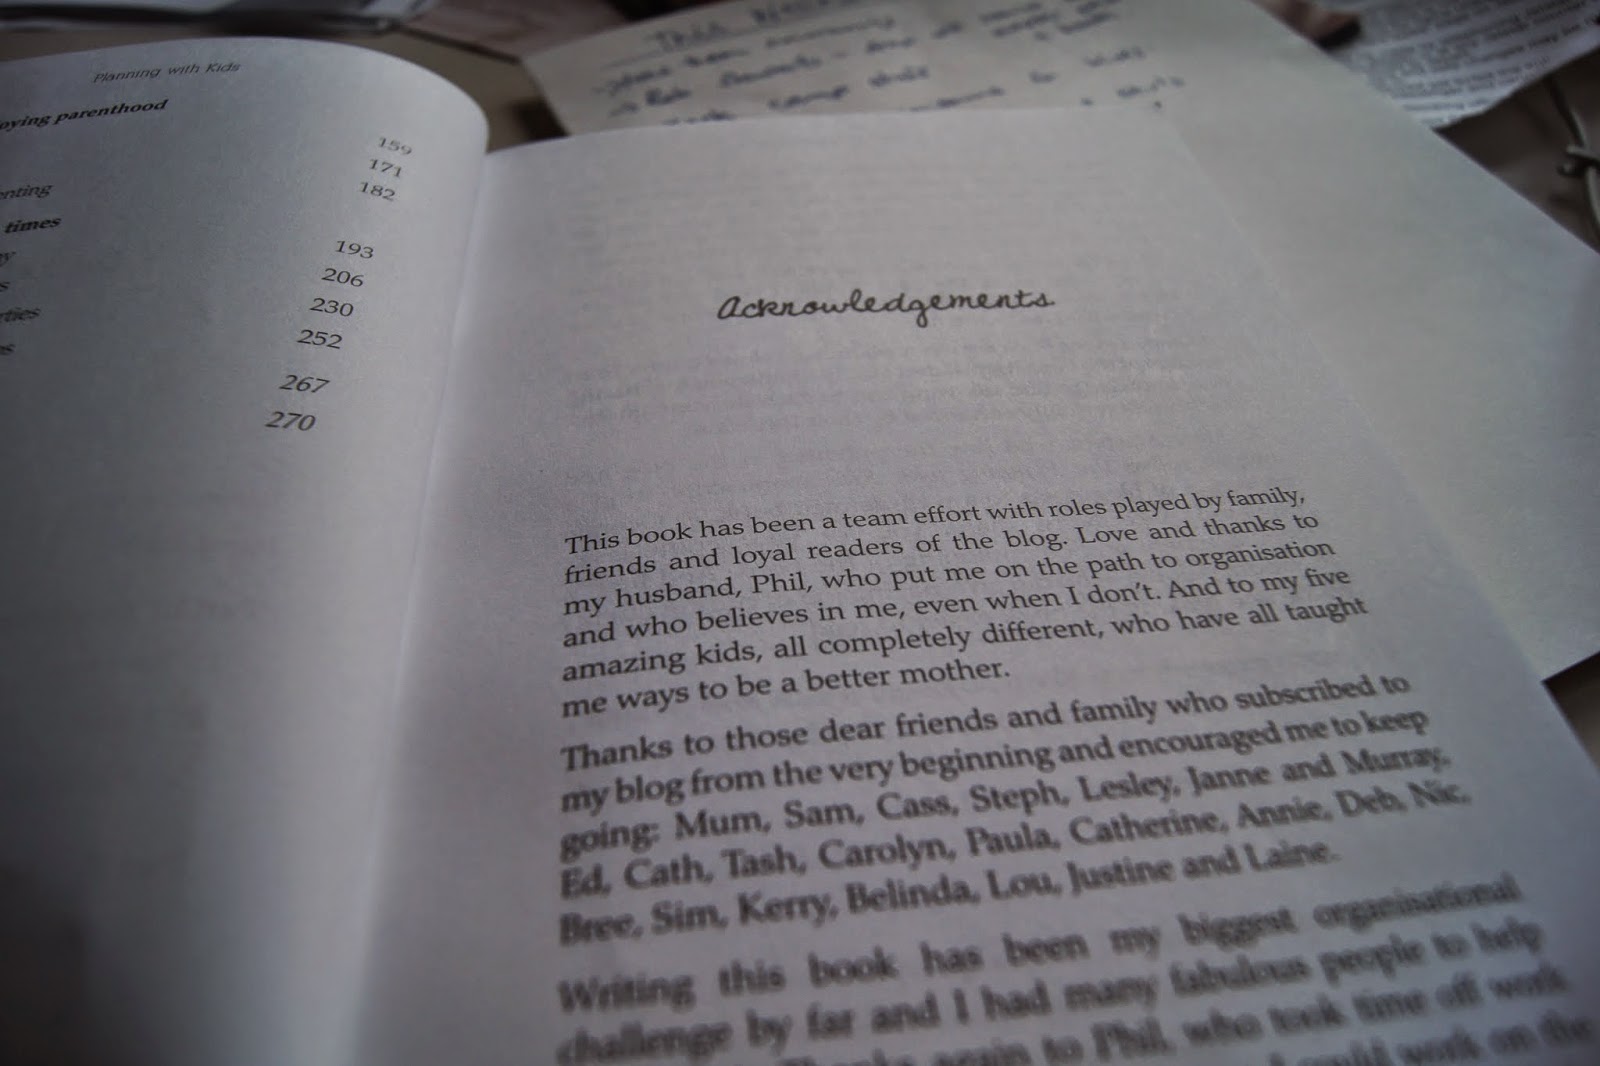 Planning with Kids
oying parenthood
159
171
enting 182
times
193
206
rties 230
252
267
270
Acknowledgements
This book has been a team effort with roles played by family,
friends and loyal readers of the blog. Love and thanks to
my husband, Phil, who put me on the path to organisation
and who believes in me, even when I don't. And to my five
amazing kids, all completely different, who have all taught
me ways to be a better mother.
Thanks to those dear friends and family who subscribed to
my blog from the very beginning and encouraged me to keep
going: Mum, Sam, Cass, Steph, Lesley, Janne and Murray,
Ed, Cath, Tash, Carolyn, Paula, Catherine, Annie, Deb, Nic,
Bree, Sim, Kerry, Belinda, Lou, Justine and Laine.
Writing this book has been my biggest organisational
challenge by far and I had many fabulous people to help
again to Phil, who took time off work
I could work on the